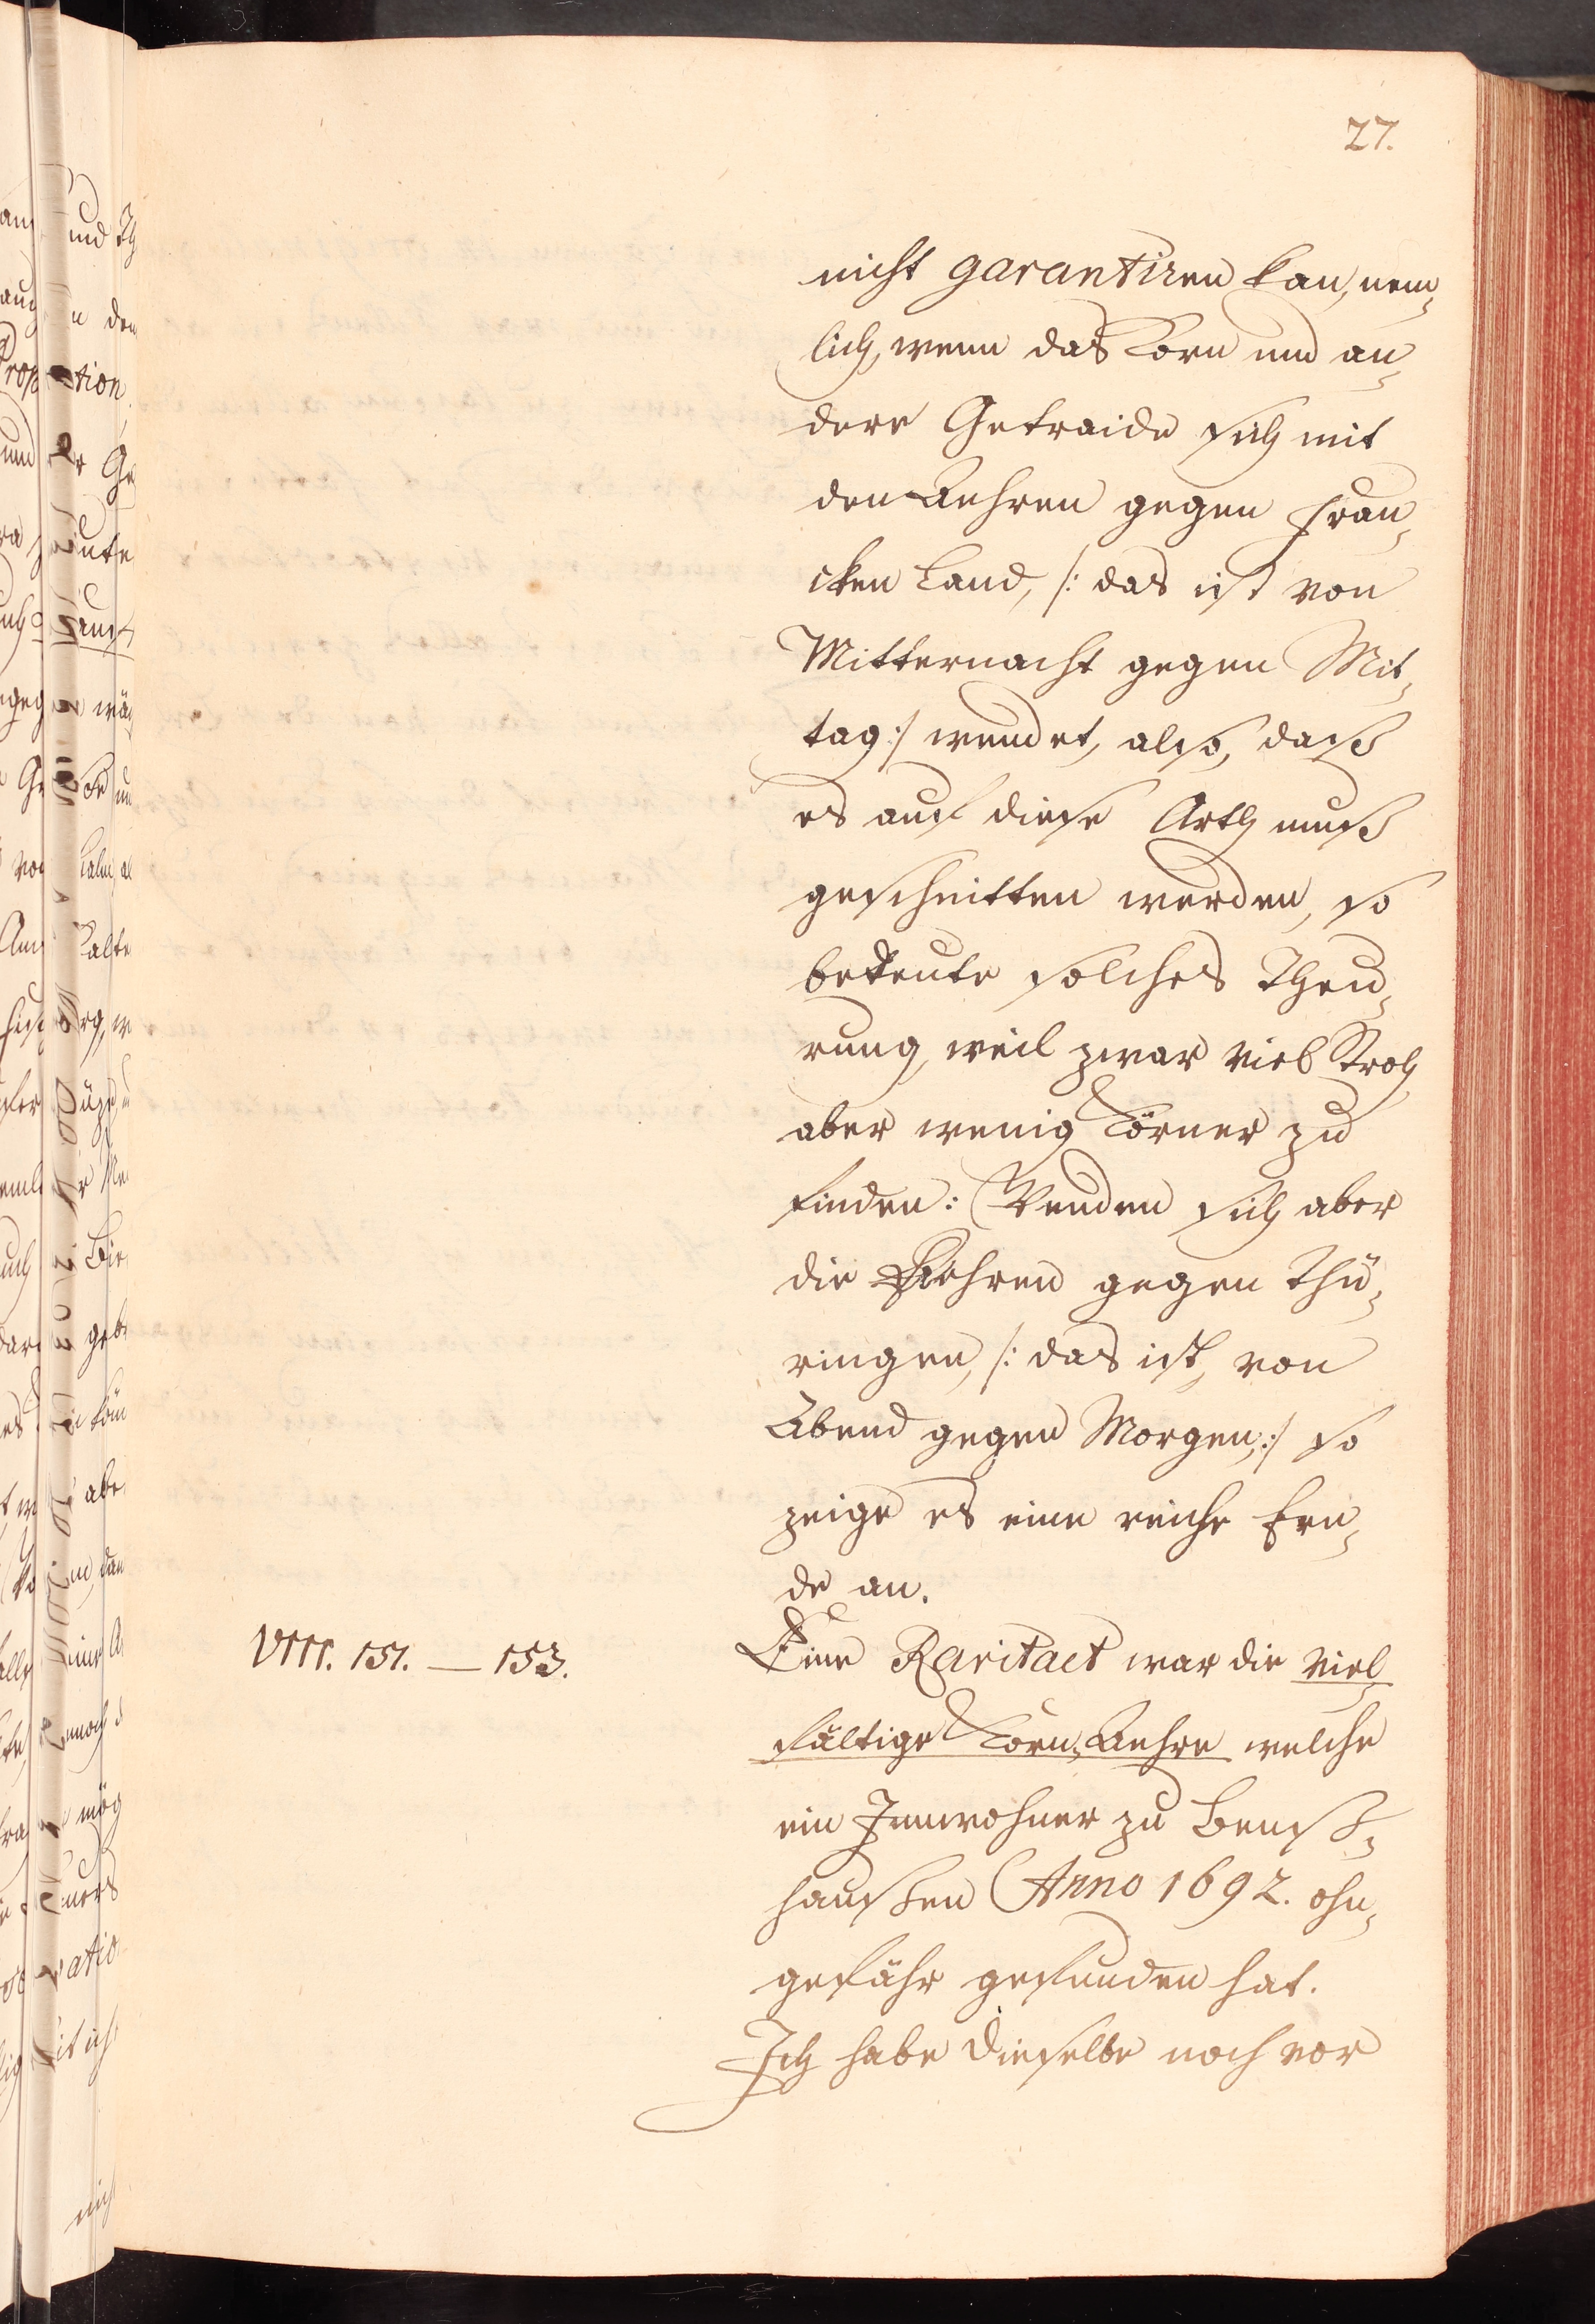 27.
nicht garantiren kan, nem-
lich, wenn das Korn und an-
dere Getraide sich mit
den Aehren gegen Fran-
cken Land, /: das ist von
Mitternacht gegen Mit-
tag :/ wendet, also, daß
es auf diese Arth muß
geschnitten werden, so
bedeute solches Theu-
rung, weil zwar viel Stroh
aber wenig Körner zu
finden: Wenden sich aber
die Aehren gegen Thü-
ringen, /: das ist, von
Abend gegen Morgen, :/ so
zeige es eine reiche Ern-
de an.
VIII. 151. — 153.
Eine Raritaet war die viel-
fältige Korn-Aehre welche
ein Innwohner zu Benß-
haußen Anno 1692. ohn-
gefähr gefunden hat.
Ich habe dieselbe noch vor